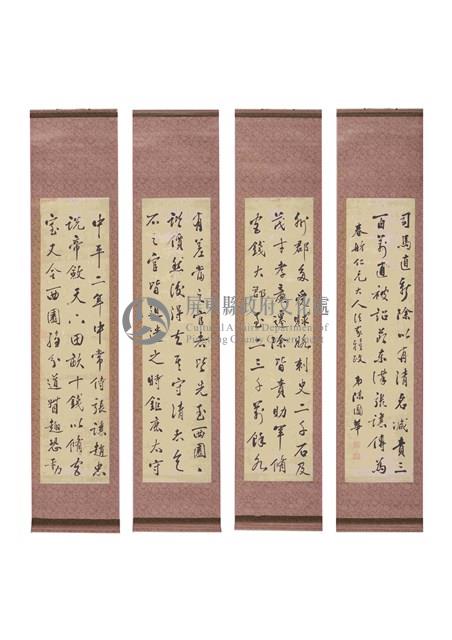 中平二年中常侍張讓趙忠
說帝斂天下田畝十錢以脩宮
室又令西園騶分道督趣恐動
州郡多受賕賂刺史二千石及
茂才孝廉遷除皆責助軍脩
宮錢大郡至二三千萬餘各
有差當之官者皆先至西園
諧價然後得去其守清者乞
不之官皆迫遣之時鉅鹿太守
司馬直新除以有清名減責三
百萬直被詔 節東漢張讓傳為
春舫仁兄大人法家雅政 弟陳國華
屏東縣政府文化處
Cultural Affairs Department of
Pingtung County Government